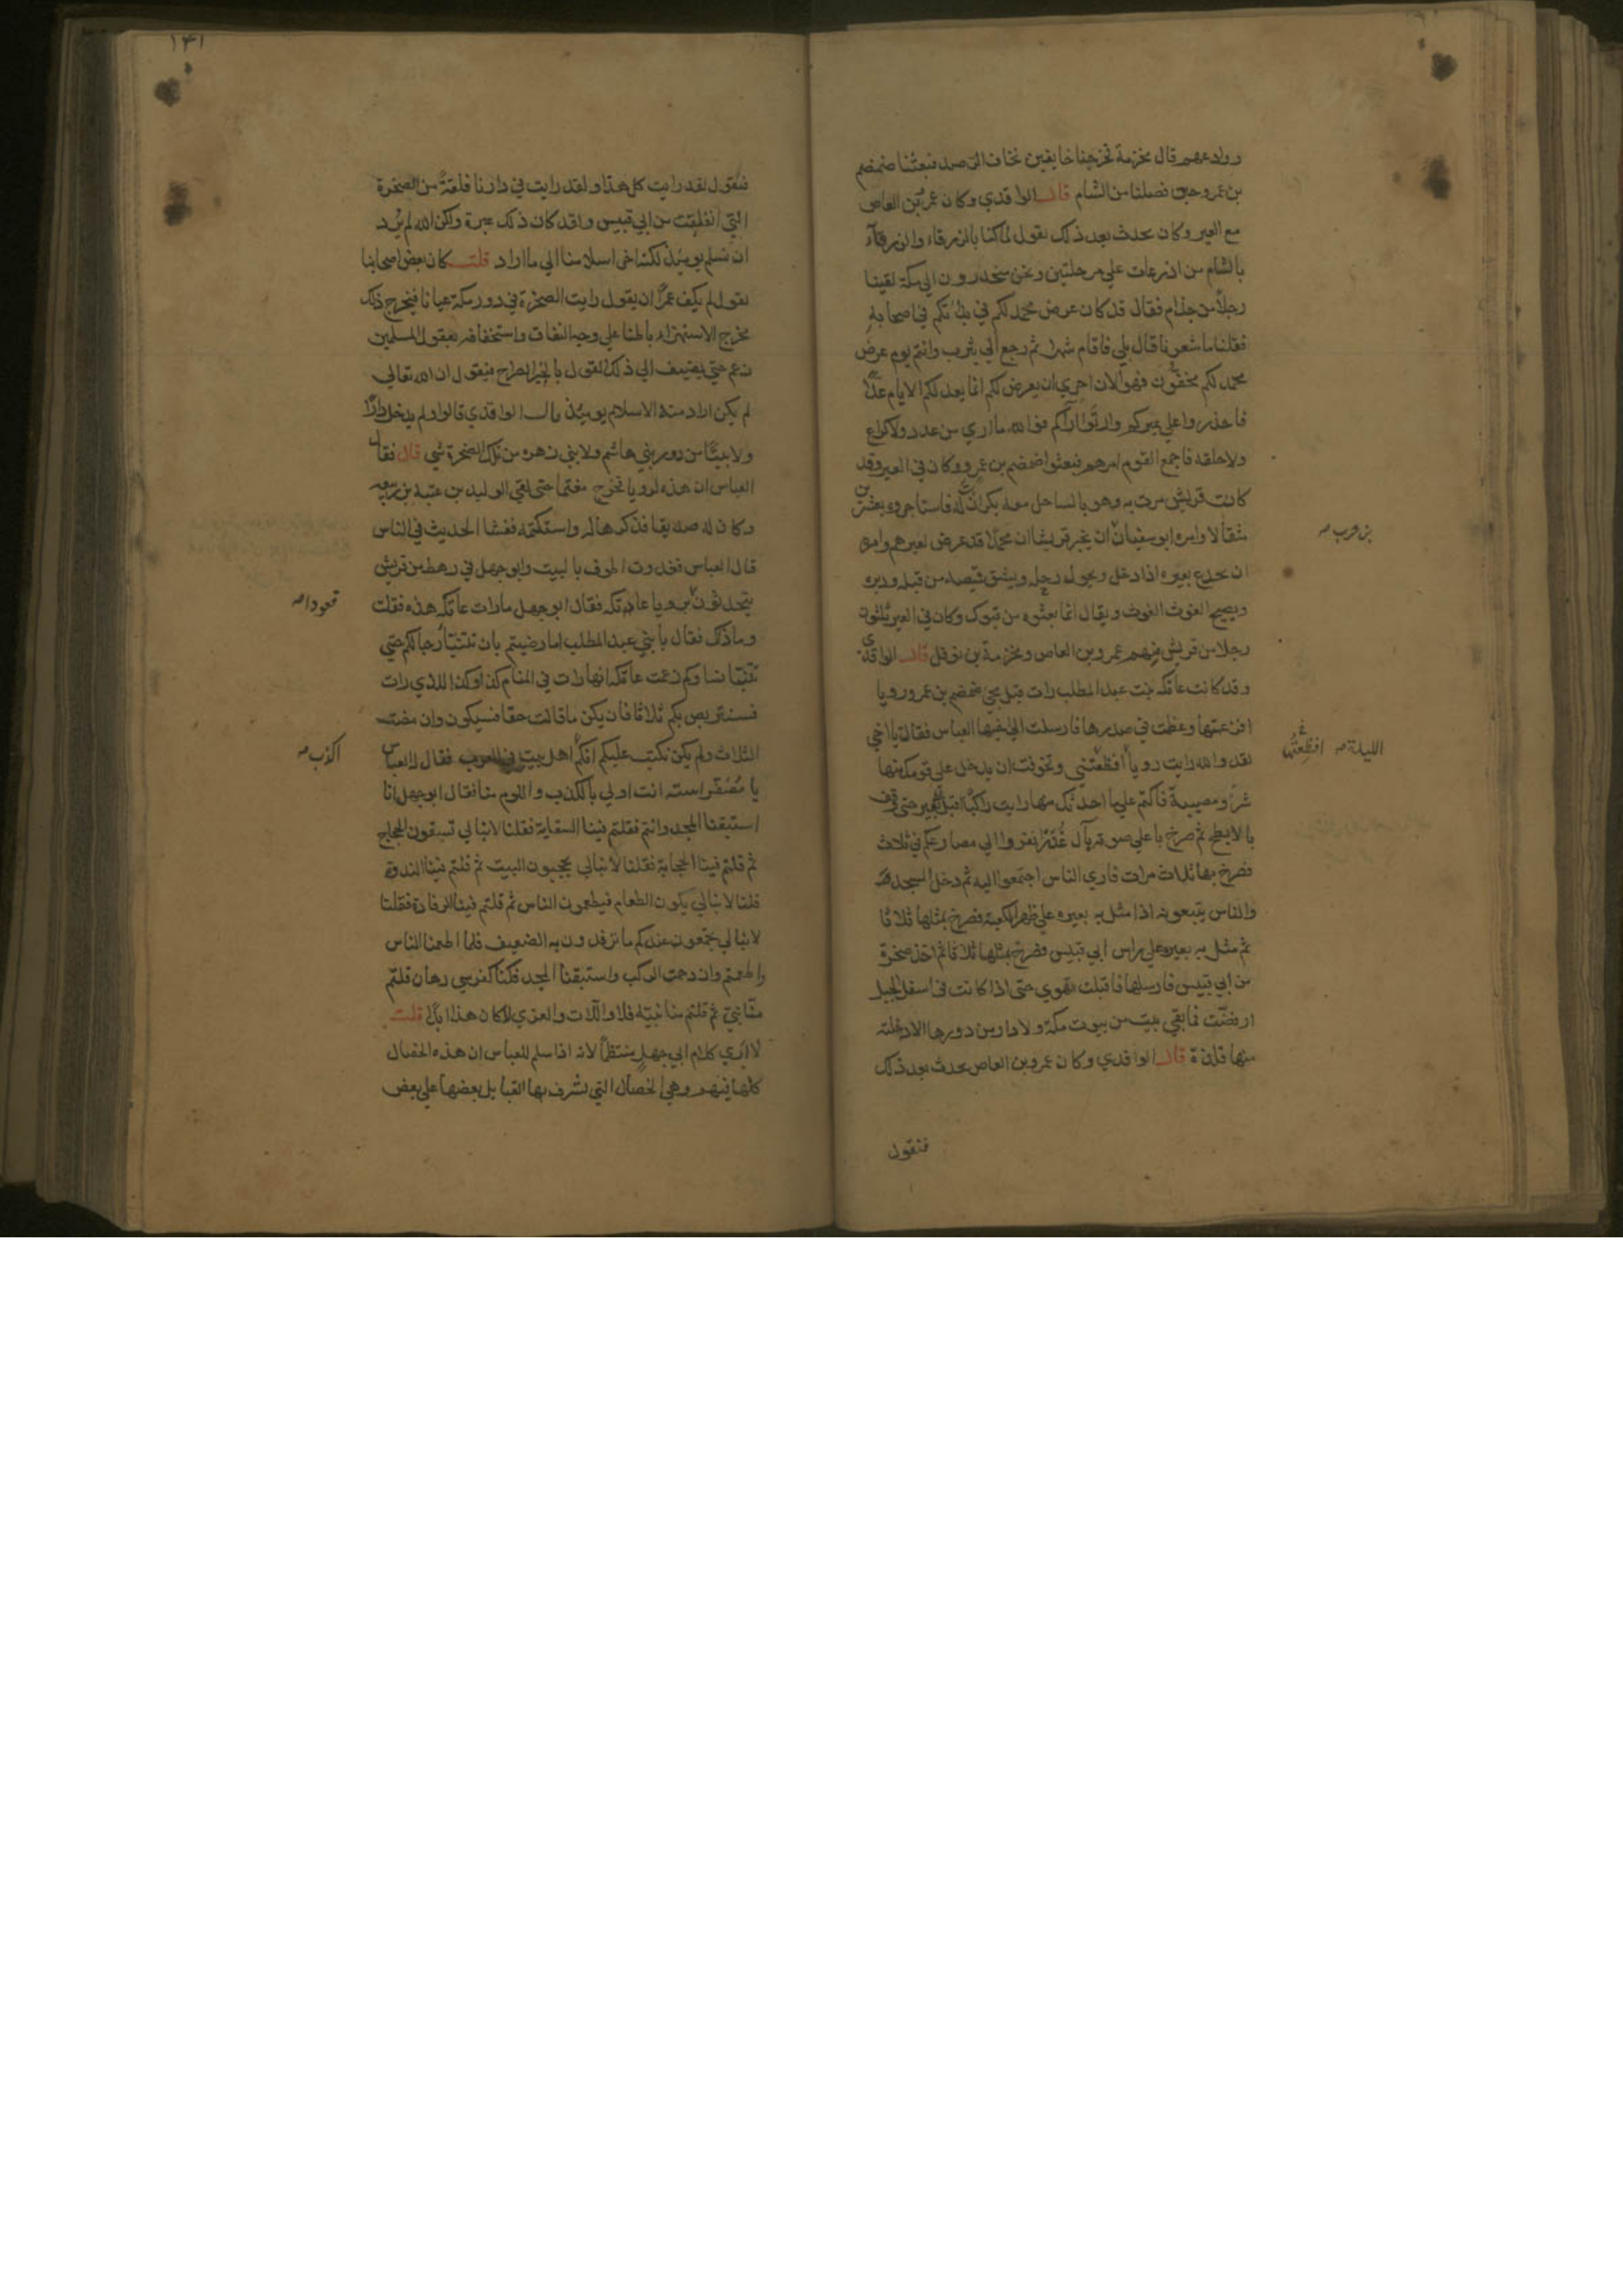 ووادعهم قال مخرمة فخرجنا خايفين نخاف الرصد فبعثنا ضمضم
بن عمرو حين فصلنا من الشام قال الواقدي وكان عمرو بن العاص
مع العير وكان يحدث بعد ذلك يقول لما كنا بالزرقاء والزرقاء
بالشام من اذرعات على مرحلتين ونحن منحدرون الي مكة لقينا
رجلا من جذام فقال قد كان عرض محمد لكم في بداتكم في اصحابه
فقلنا ما شعرنا قال بلي فاقام شهرا ثم رجع الي يثرب وانتم يوم عرض
محمد لكم مخفون فهو الان احري ان يعرض لكم انما يعد لكم الايام عدا
فاحذروا علي عيركم وارتاوا اراكم فوالله ما اري من عدد ولا كراع
ولا حلقه فاجمع القوم امرهم فبعثوا ضمضم بن عمرو وكان في العير وقد
كانت قريش مرت به وهو بالساحل معه بكران له فاستاجروه بعشرين
مثقالا وامره ابو سفيان ان يخبر قريشا ان محمدا قد عرض لعيرهم وامره
بن حرب صح
ان يجدع بعيره اذا دخل ويحول رحله ويشق قميصه من قبله ودبره
ويصيح الغوث الغوث ويقال انما بعثوه من تبوك وكان في العير ثلثون
رجلا من قريش منهم عمرو بن العاص ومخرمة بن نوفل قال الواقدي
وقد كانت عاتكه بنت عبد المطلب رات قبل مجئ ضمضم بن عمرو رويا
افزعتها وعظمت في صدرها فارسلت الي اخيها العباس فقالت يا اخي
لقد والله رايت رويا افظعتني وتخوفت ان يدخل علي قومك منها
الليلة صح افظعتها
شر ومصيبة فاكتم علي ما احدثك منها رايت راكبا اقبل علي بعير حتى وقف
بالابطح ثم صرخ باعلي صوته يآل غدر انفروا الي مصارعكم في ثلاث
فصرخ بها ثلاث مرات فاري الناس اجتمعوا اليه ثم دخل المسجد
والناس يتبعونه اذا مثل به بعيره علي ظهر الكعبة فصرخ بمثلها ثلاثا
ثم مثل به بعيره علي راس ابي قبيس فصرخ بمثلها ثلاثا ثم اخذ صخرة
من ابي قبيس فارسلها فاقبلت تهوي حتى اذا كانت في اسفل الجبل
ارفضت فما بقي بيت من بيوت مكة ولا دار من دورها الا دخلته
منها فلذة قال الواقدي وكان عمرو بن العاص يحدث بعد ذلك
فيقول
١٣١
فيقول لقد رايت كل هذا ولقد رايت في دارنا فلقة من الصخرة
التي انفلقت من ابي قبيس ولقد كان ذلك عبرة ولكن الله لم يرد
ان نسلم يوميذ لكنه اخر اسلامنا الي ما اراد قلت كان بعض اصحابنا
يقول لم يكف عمرا ان يقول رايت الصخرة في دور مكة عيانا فيخرج ذلك
مخرج الاستهزاء باطنا علي وجه النفاق واستخفافه بعقول المسلمين
زعم حتي يضيف الي ذلك القول بالخبر الصراح فيقول ان الله تعالي
لم يكن اراد منه الاسلام يوميذ قال الواقدي قالوا ولم يدخل دارا
ولا بيتا من دور بني هاشم ولا بني زهره من تلك الصخرة شي قال فقال
العباس ان هذه لرويا فخرج مغتما حتى لقي الوليد بن عتبة بن ربيعه
وكان له صديقا فذكرها له واستكتمه ففشا الحديث في الناس
قال العباس فغدوت اطوف بالبيت وابو جهل في رهط من قريش
يتحدثون برويا عاتكه فقال ابو جهل ما رات عاتكه هذه فقلت
قعودا صح
وما ذاك فقال يا بني عبد المطلب اما رضيتم بان تتنبا رجالكم حتي
تتنبا نساوكم زعمت عاتكه انها رات في المنام كذا وكذا للذي رات
فسنتربص بكم ثلاثا فان يكن ما قالت حقا فسيكون وان مضت
الثلاث ولم يكن نكتب عليكم انكم اهل بيت في العرب فقال له العباس
اكذب صح
يا مصفر استه انت اولي بالكذب واللوم منا فقال ابو جهل انا
استبقنا المجد وانتم فقلتم فينا السقاية فقلنا لا نبالي تسقون الحجاج
ثم قلتم فينا الحجابة فقلنا لا نبالي يحجبون البيت ثم قلتم فينا الندوة
قلنا لا نبالي يكون الطعام فيطعمون الناس ثم قلتم فينا الرفادة فقلنا
لا نبالي يجتمعون عندكم ما ترفدون به الضعيف فلما اطعمنا الناس
واطعمتم وازدحمت الركب واستبقنا المجد فكنا كفرسي رهان قلتم
منا نبي ثم قلتم منا نبيه فلا واللات والعزي لا كان هذا ابدا قلت
لا اري كلام ابي جهل منتظما لانه اذا سلم للعباس ان هذه الخصال
كلها فيهم وهي الخصال التي تشرف بها القبايل بعضها علي بعض